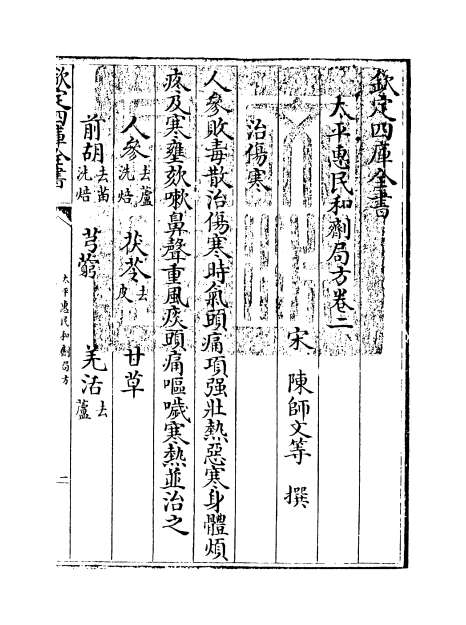 欽定四庫全書
太平惠民和劑局方卷二
宋 陳師文等 撰
治傷寒
人參敗毒散治傷寒時氣頭痛項强壯熱惡寒身體煩
疼及寒壅欬嗽鼻聲重風痰頭痛嘔噦寒熱並治之
人參去蘆洗焙 茯苓去皮 甘草
前胡去苗洗焙 芎藭 羌活去蘆
欽定四庫全書 太平惠民和劑局方 二